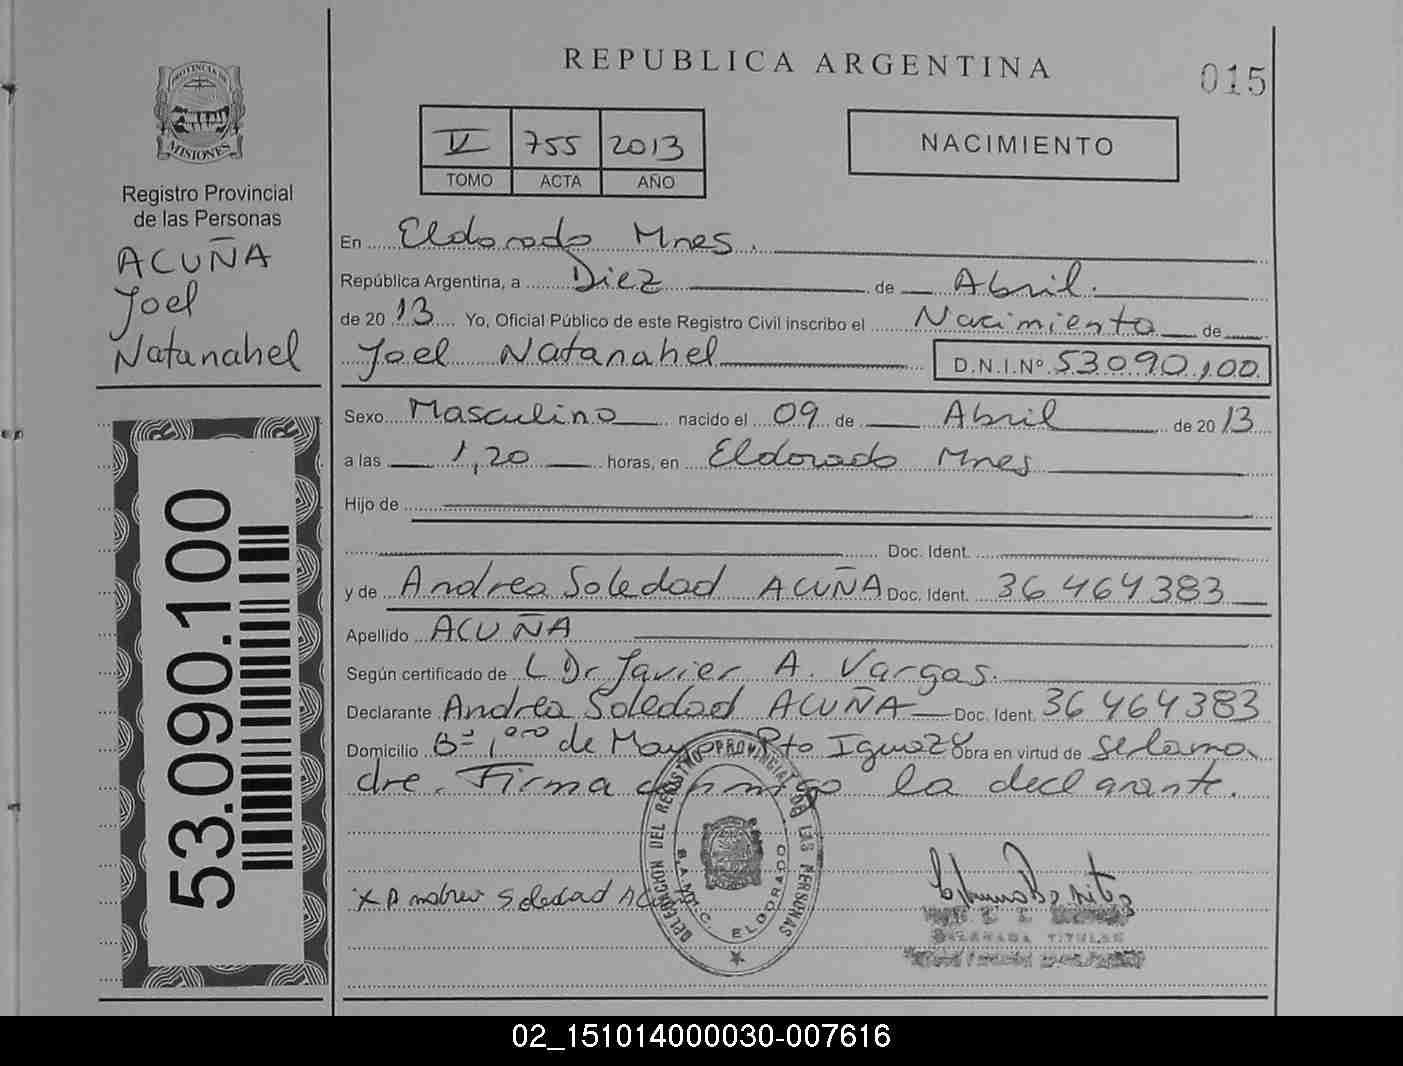 REPUBLICA ARGENTINA
015
PROVINCIA DE
MISIONES
Registro Provincial
de las Personas
ACUÑA
Joel
Natanahel
53.090.100
V 755 2013
TOMO ACTA AÑO
NACIMIENTO
En Eldorado Mnes.
República Argentina, a Diez de Abril.
de 2013 Yo, Oficial Público de este Registro Civil inscribo el Nacimiento de
Joel Natanahel D.N.I.Nº 53.090.100
Sexo Masculino nacido el 09 de Abril de 2013
a las 1,20 horas, en Eldorado Mnes
Hijo de
Doc. Ident.
y de Andrea Soledad ACUÑA Doc. Ident. 36 464 383
Apellido ACUÑA
Según certificado de L Dr Javier A. Vargas.
Declarante Andrea Soledad ACUÑA Doc. Ident. 36 464 383
Domicilio Bº 1ero de Mayo Pto Iguazú Obra en virtud de ser la ma
dre. Firma conmigo la declarante.
DELEGACION DEL REGISTRO PROVINCIAL DE LAS PERSONAS
ELDORADO
x Andrea Soledad Acuña
TITULAR
02_151014000030-007616